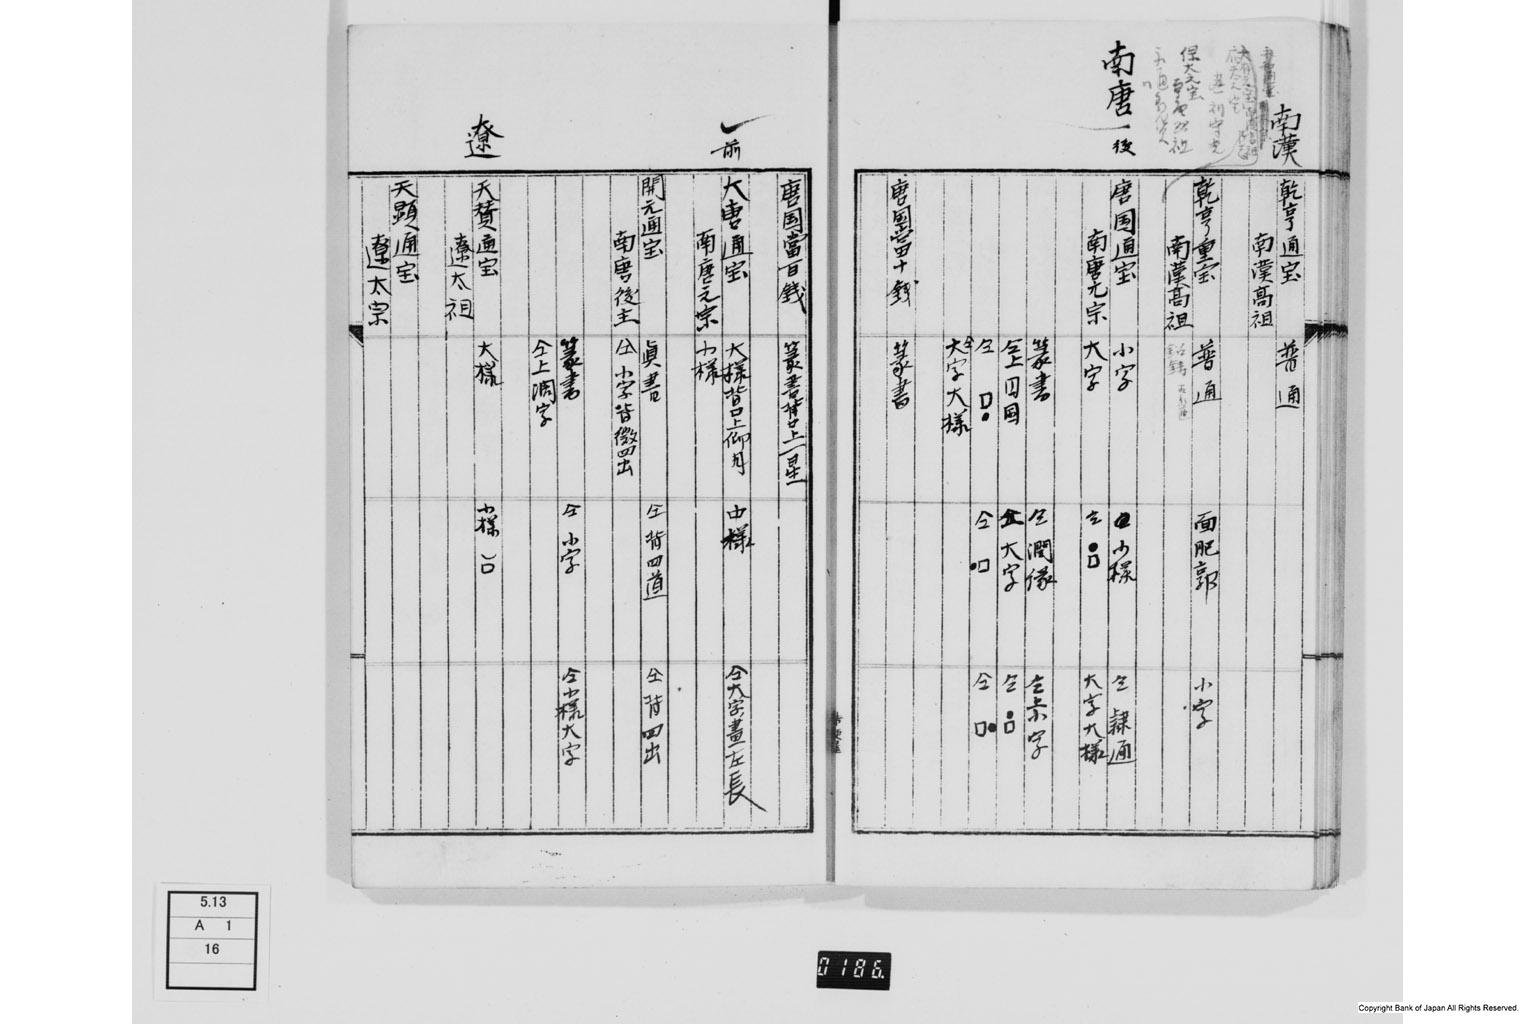 南漢
乾亨通宝
南漢高祖
普通
乾亨重宝
南漢高祖
普通
面肥郭
小字
南唐
後
唐国通宝
南唐元宗
小字
仝 小様
仝 隷通
大字
仝
大字大様
篆書
仝 濶縁
仝
仝上 四国
仝 大字
仝
仝
仝
仝
仝
大字大様
唐国當十銭
篆書
唐国當百銭
篆書背口上一星
前
大唐通宝
南唐元宗
大様背口上仰月
中様
仝大字畫左長
小様
開元通宝
南唐後主
眞書
仝 背四道
仝 背四出
仝 小字背微四出
篆書
仝 小字
仝小様大字
仝上濶字
遼
天賛通宝
遼太祖
大様
小様
天顕通宝
遼太宗
5.13
A 1
16
0186.
Copyright Bank of Japan All Rights Reserved.